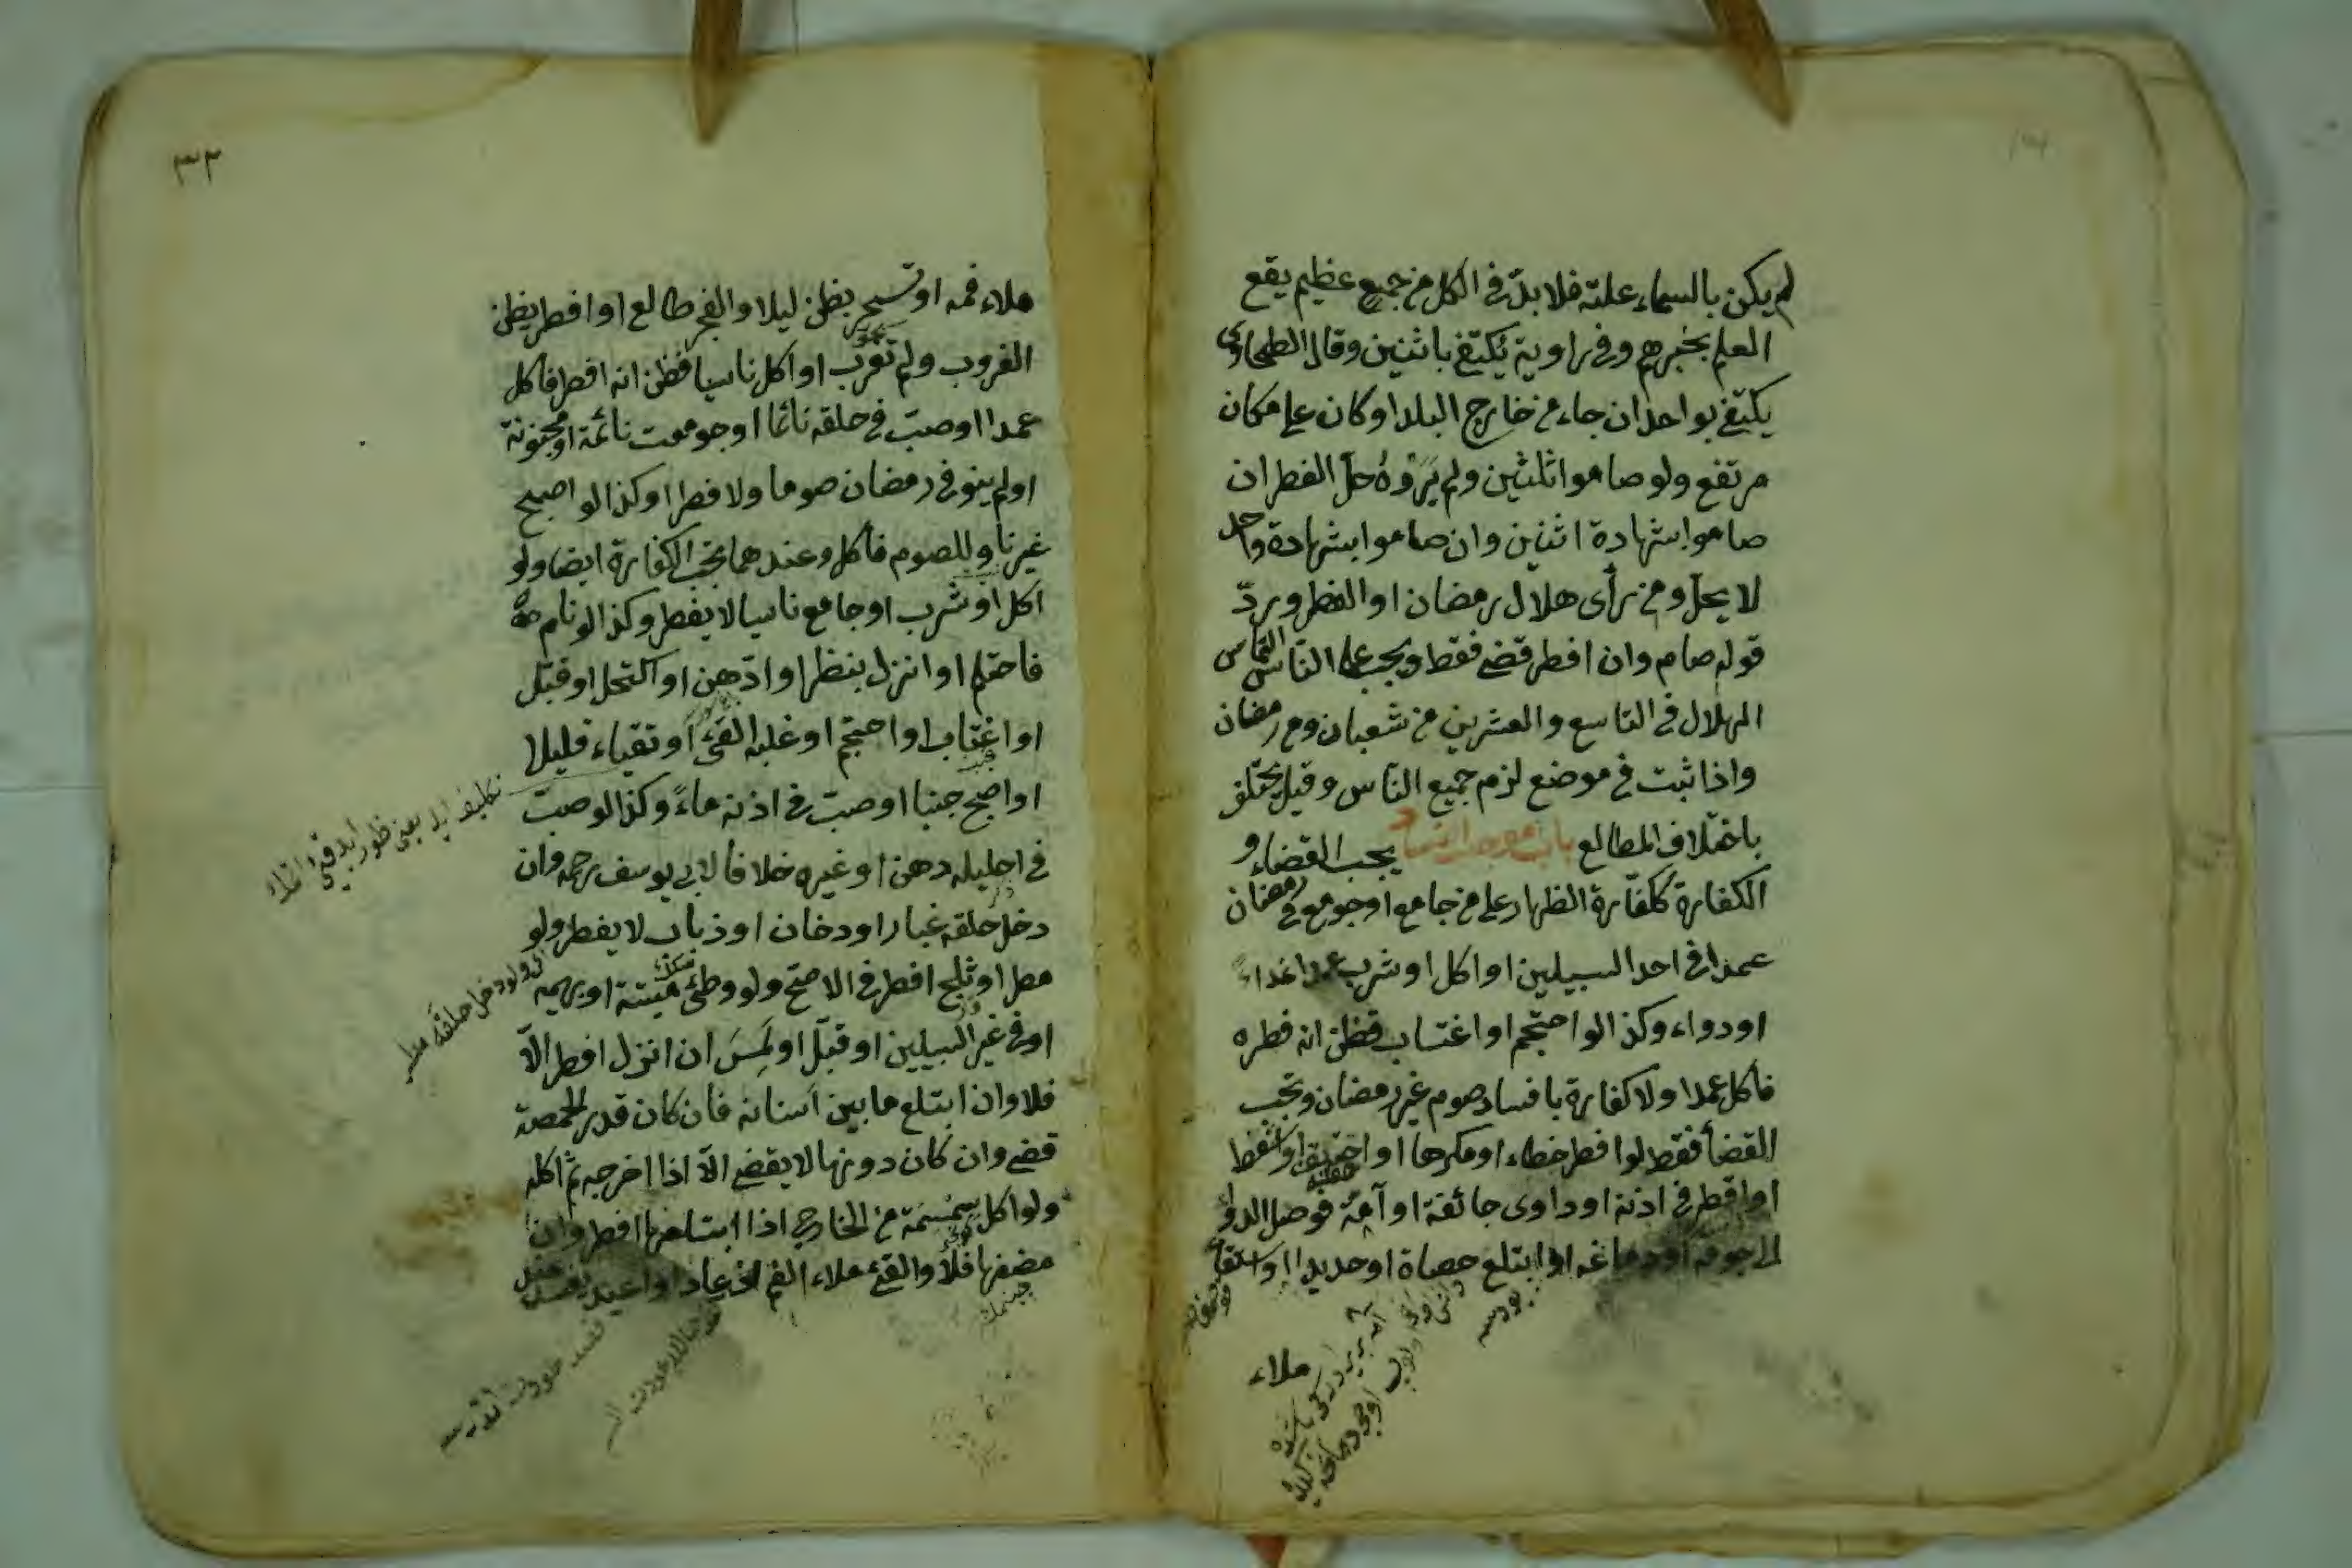 لم يكن بالسماء علة فلا بدّ في الكل من جمع عظيم يقع
العلم بخبرهم وفي راوية يُكتفى باثنين وقال الطحاوى
يكتفى بواحد ان جاء من خارج البلد او كان على مكان
مرتفع ولو صاموا ثلثين ولم يَرَوْهُ حلّ الفطر ان
صاموا بشهادة اثنين وان صاموا بشهادة واحد
لا يحل ومن رأى هلال رمضان او الفطر وردّ
قوله صام وان افطر قضى فقط ويجب على الناس التماس
الهلال في التاسع والعشرين من شعبان ومن رمضان
واذا ثبت في موضع لزم جميع الناس وقيل يختلف
باختلاف المطالع باب موجب الفساد يجب القضاء و
الكفارة ككفّارة الظهار على من جامع او جومع في رمضان
عمدا في احد السبيلين او اكل او شرب عمدا غذاءً
او دواء وكذا لو احتجم او اغتاب فظن انه فطره
فاكل عمدا ولا كفارة بافساد صوم غير رمضان وتجب
القضأ فقط لو افطر خطاء او مكرها او احتقن او استعط
او اقطر في اذنه او داوى جائفة او آمّة فوصل الدوأ
الى جوفه او دماغه او ابتلع حصاة او حديدا او استقاء
ملاء
٣٢
ملاء فمه او تسحر بظن ليلا والفجر طالع او افطر يظن
الغروب ولم تغرب او اكل ناسيا فظن انه افطر فاكل
عمدا او صبّ في حلقه نائما او جومعت نائمة او مجنونة
او لم ينو في رمضان صوما ولا فطرا وكذا لو اصبح
غير ناو للصوم فاكل وعندهما تجب الكفارة ايضا ولو
اكل او شرب او جامع ناسيا لا يفطر وكذا لو نام
فاحتلم او انزل بنظر او ادّهن او اكتحل او قبّل
او اغتاب او احتجم او غلبه القئ او تقياء قليلا
او اصبح جنبا او صبّ في اذنه ماءً وكذا لو صبّ
في احليله دهن او غيره خلافا لابي يوسف رحمه وان
دخل حلقه غبار او دخان او ذباب لا يفطر ولو
مطر او ثلج افطر في الاصحّ ولو وطئ ميتة او بهيمة
او في غير السبيلين او قبّل او لَمَسَ ان انزل افطر الّا
فلا وان ابتلع ما بين اسنانه فان كان قدر الحمصة
قضى وان كان دونها لا يقضى الّا اذا اخرجه ثم اكله
ولو اكل سمسمة من الخارج اذا ابتلعها افطر وان
مضغها فلا والقئ ملاء الفم ان عاد او اعيد يفسد